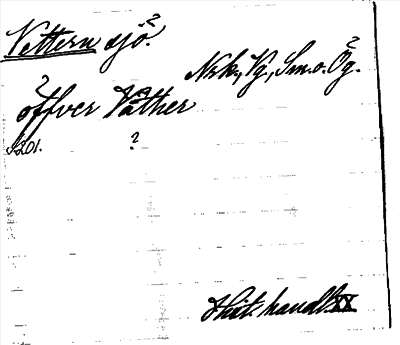 Vettern sjö?
Nrk, Vg, Sm. o. Ög.
öffver Väther
s. 201. ?
Hist. handl. XX